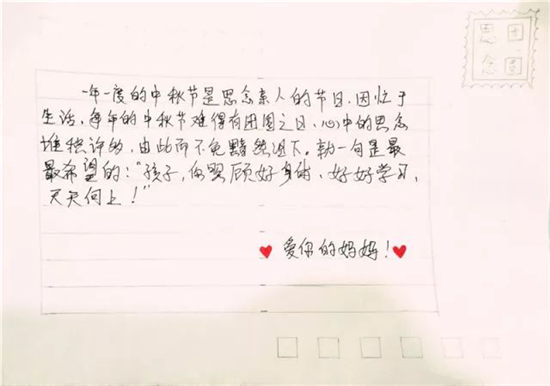 一年一度的中秋节是思念亲人的节日,因忙于
生活,每年的中秋节难得有团圆之日,心中的思念
堆积许多,由此而不免黯然泪下。勉一句是最
最希望的:“孩子,你要顾好身体、好好学习,
天天向上!”
♥爱你的妈妈!♥
思 团
念 圆